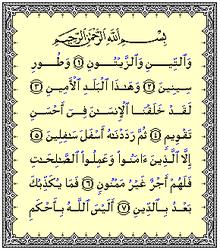 بِسْمِ اللَّهِ الرَّحْمَٰنِ الرَّحِيمِ
وَالتِّينِ وَالزَّيْتُونِ ١ وَطُورِ
سِينِينَ ٢ وَهَٰذَا الْبَلَدِ الْأَمِينِ ٣
لَقَدْ خَلَقْنَا الْإِنسَٰنَ فِي أَحْسَنِ
تَقْوِيمٍ ٤ ثُمَّ رَدَدْنَٰهُ أَسْفَلَ سَٰفِلِينَ ٥
إِلَّا الَّذِينَ ءَامَنُوا وَعَمِلُوا الصَّٰلِحَٰتِ
فَلَهُمْ أَجْرٌ غَيْرُ مَمْنُونٍ ٦ فَمَا يُكَذِّبُكَ
بَعْدُ بِالدِّينِ ٧ أَلَيْسَ اللَّهُ بِأَحْكَمِ